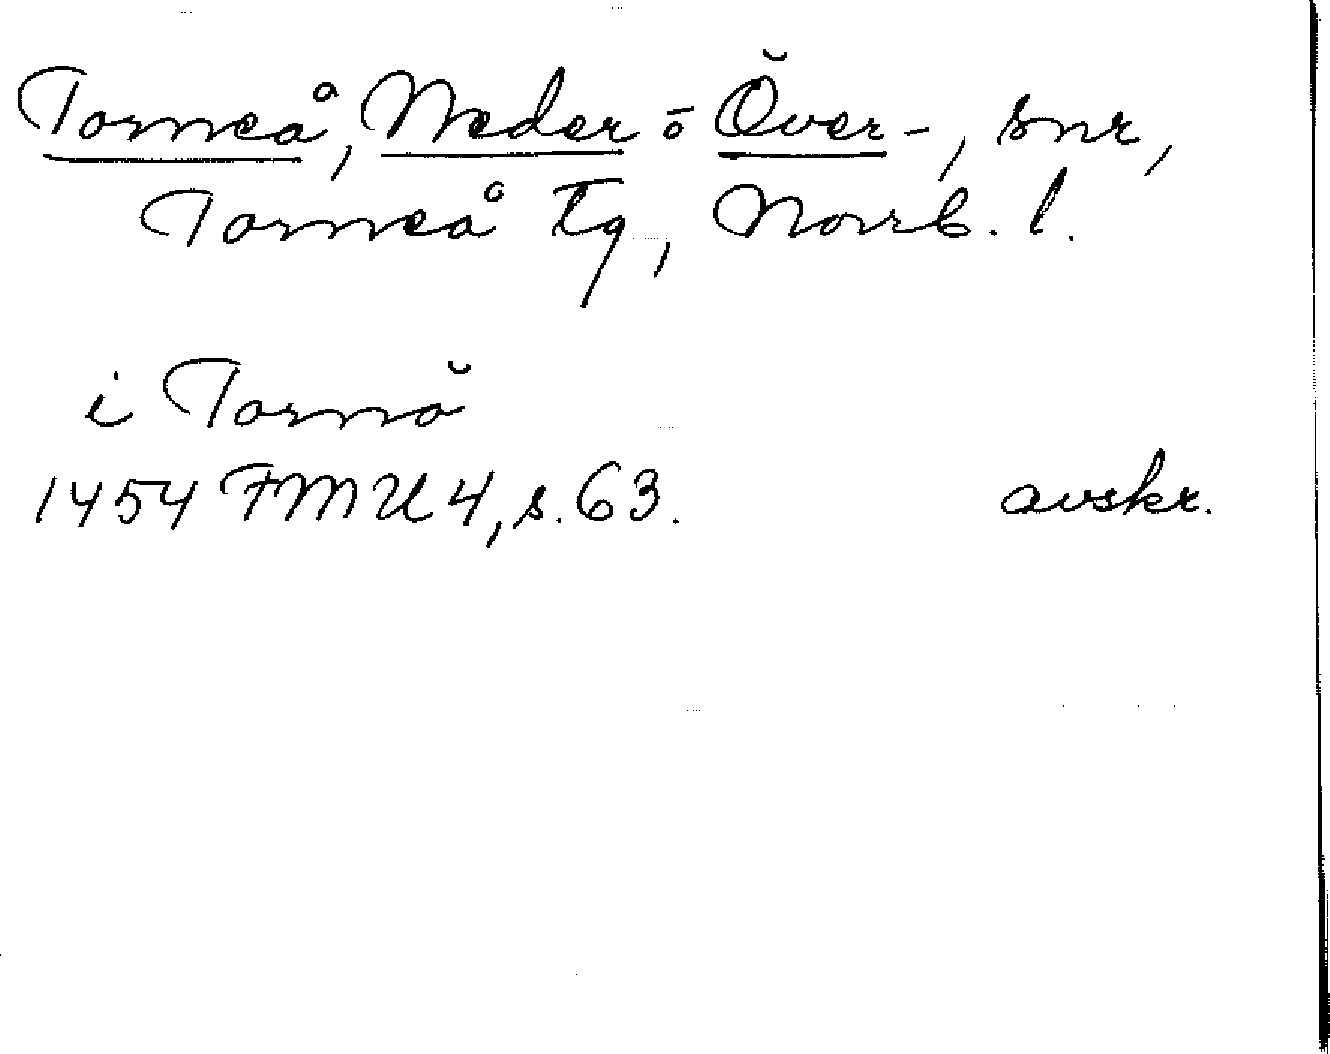 Torneå, Neder- o Över-, snr,
Torneå tg, Norrb. l.
i Tornö
1454 FMU 4, s. 63. avskr.